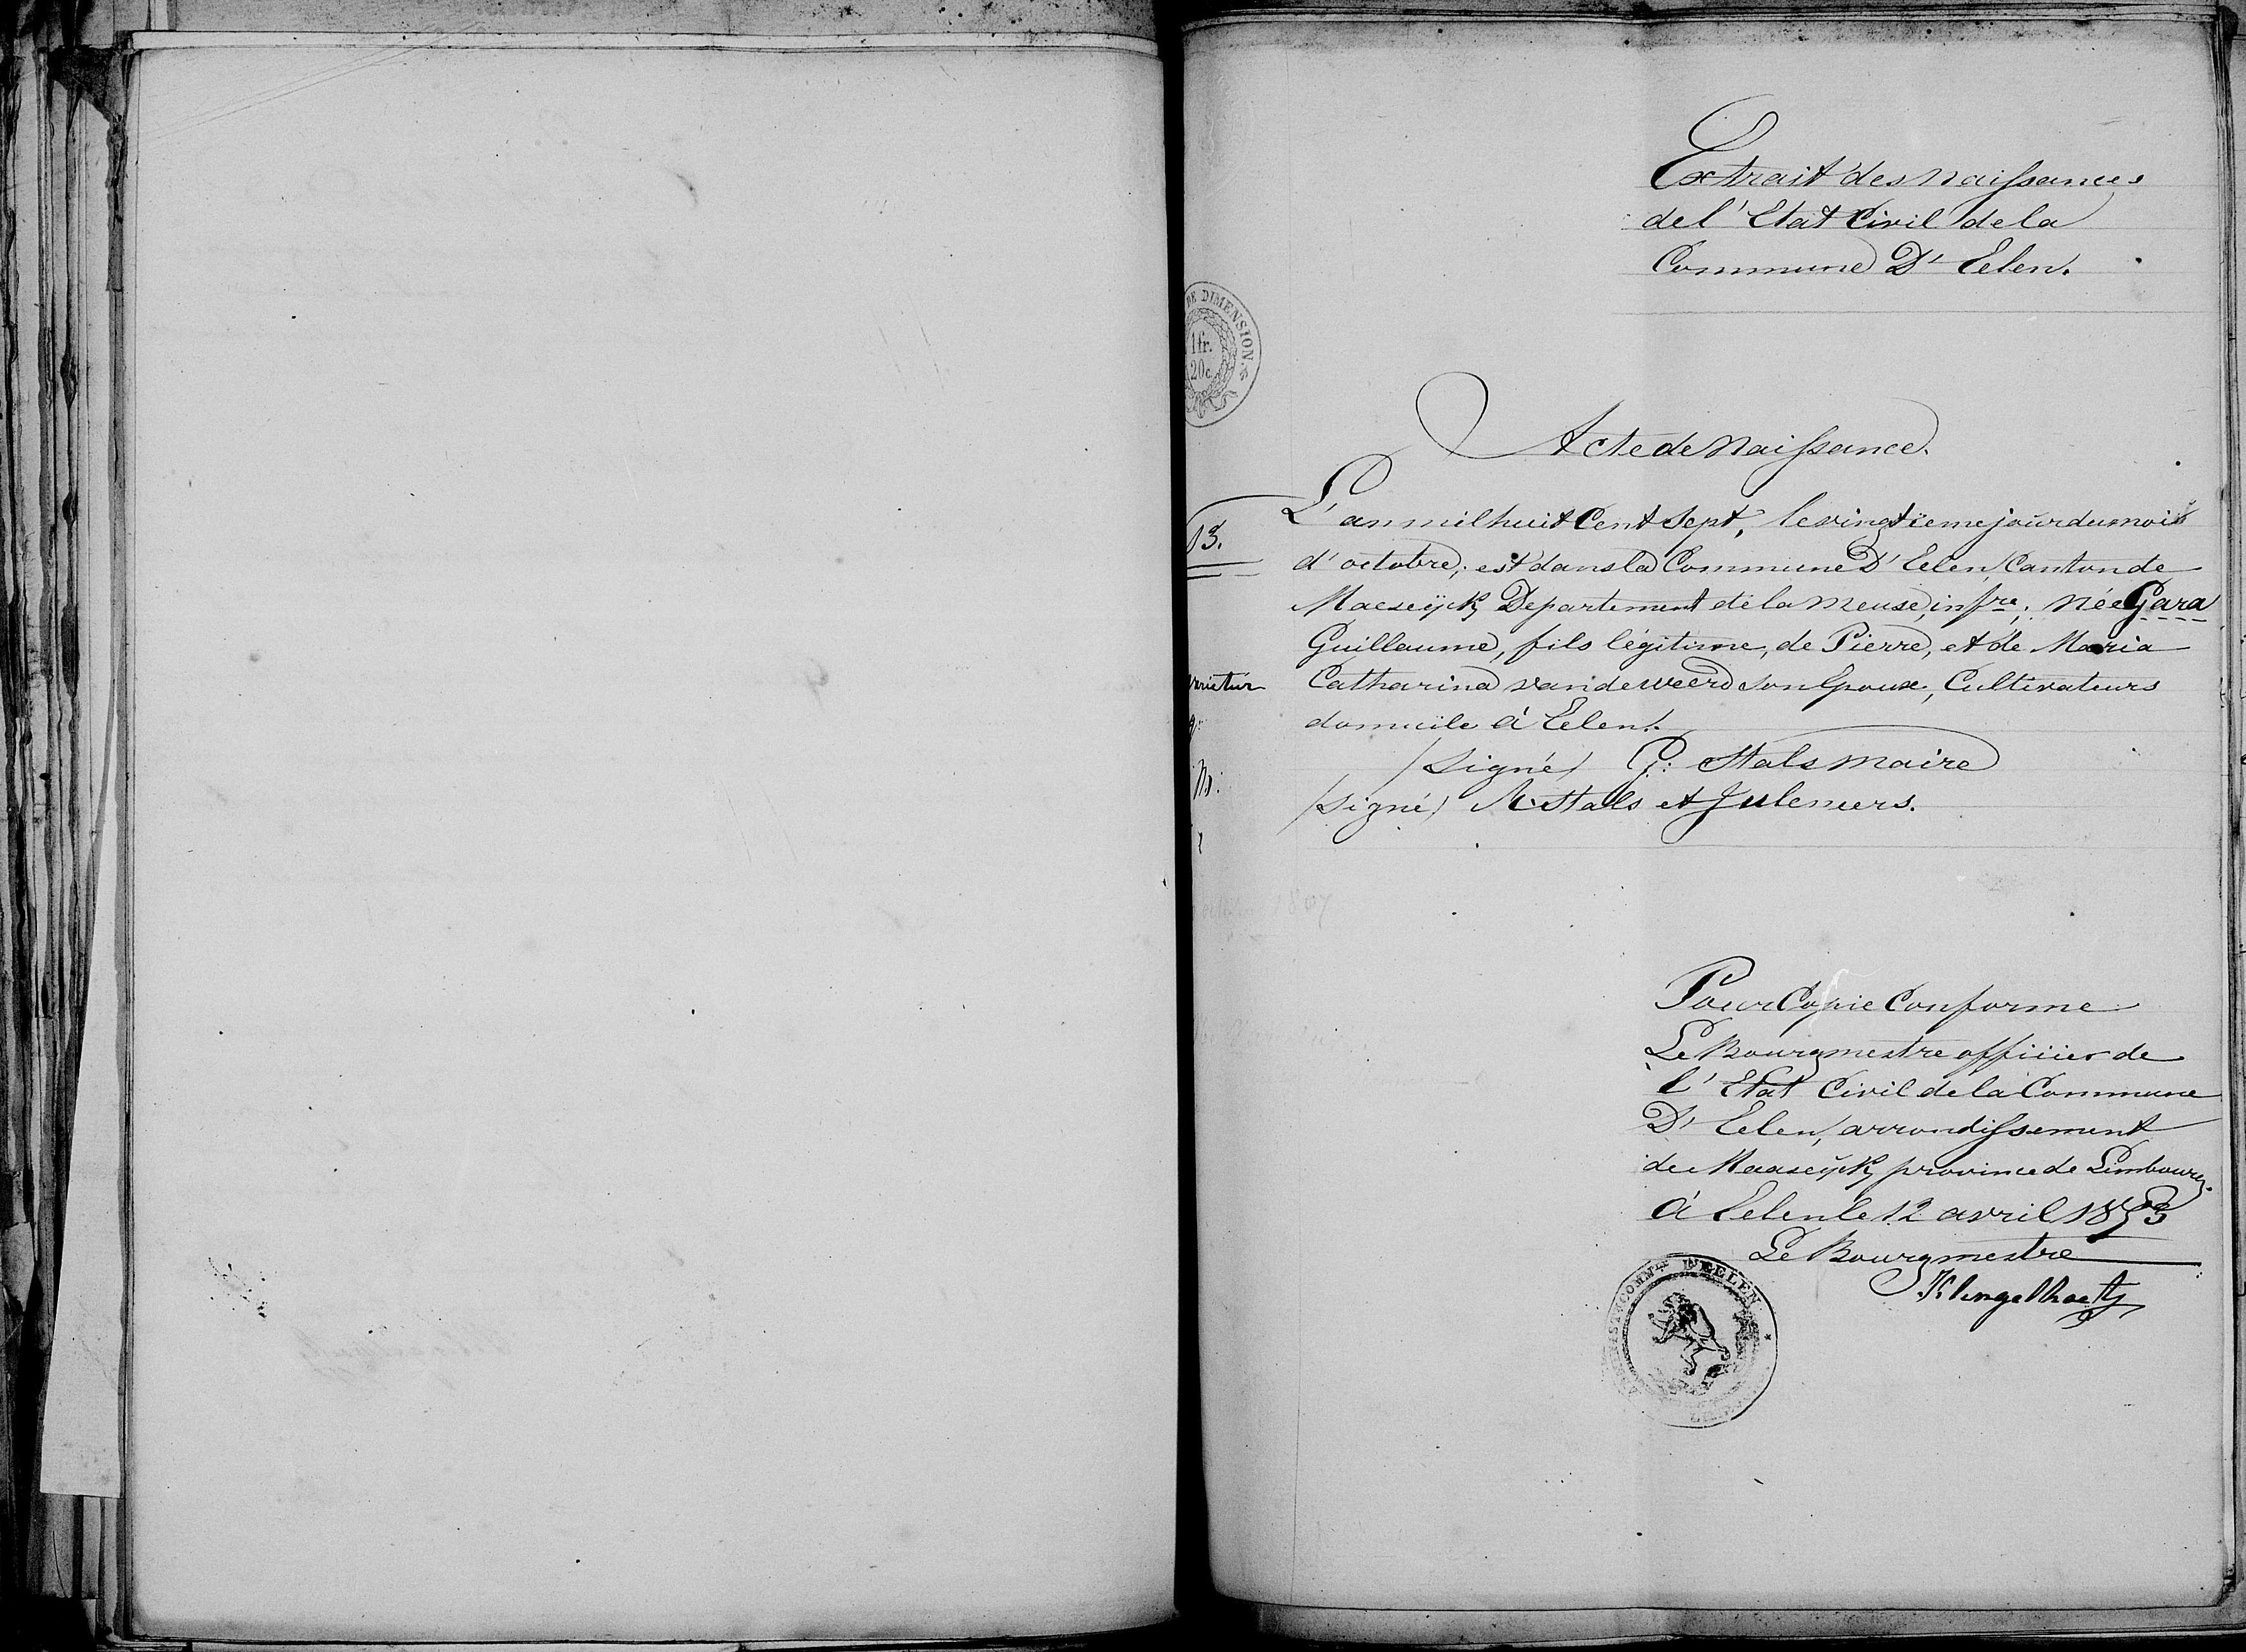 Extrait des Naissances
de l'Etat Civil de la
Commune D' Eelen.
DE DIMENSION.
1 fr.
20 c.
Acte de Naissance.
13.
L'an mil huit Cent Sept, le vingtieme jour du mois
d'octobre, est dans la Commune D' Eelen, Canton de
Maeseÿck Departement de la Meuse, infre. Née Gara
Guillaume, fils légitime, de Pierre, et de Maria
varietur
Catharina vandeweerd son Epouse, Cultivateurs
domicile à Eelen.
(Signé) G: Stals Maire
(Signé) A. Stals et Julemers.
1807
Pour Copie Conforme
Le Bourgmestre officier de
l'Etat Civil de la Commune
D' Eelen, arrondissement
de Maaseÿck, province de Limbourg.
à Eelen le 12 avril 1853
Le Bourgmestre
Klingelhoets
EELEN